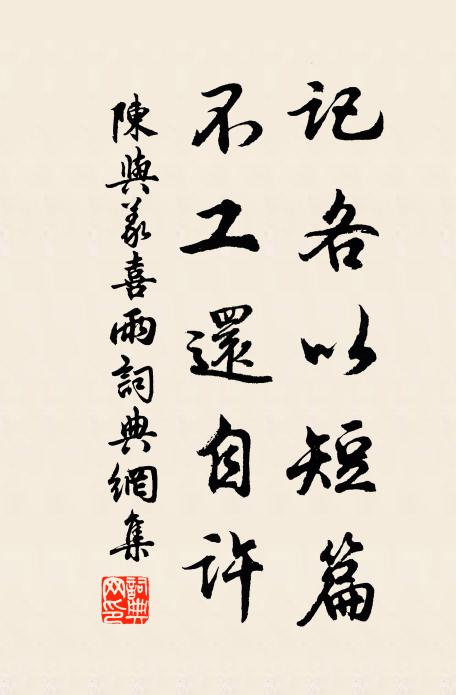 記名以短篇
不工還自許
陳與義喜雨詞典網集
詞典網印